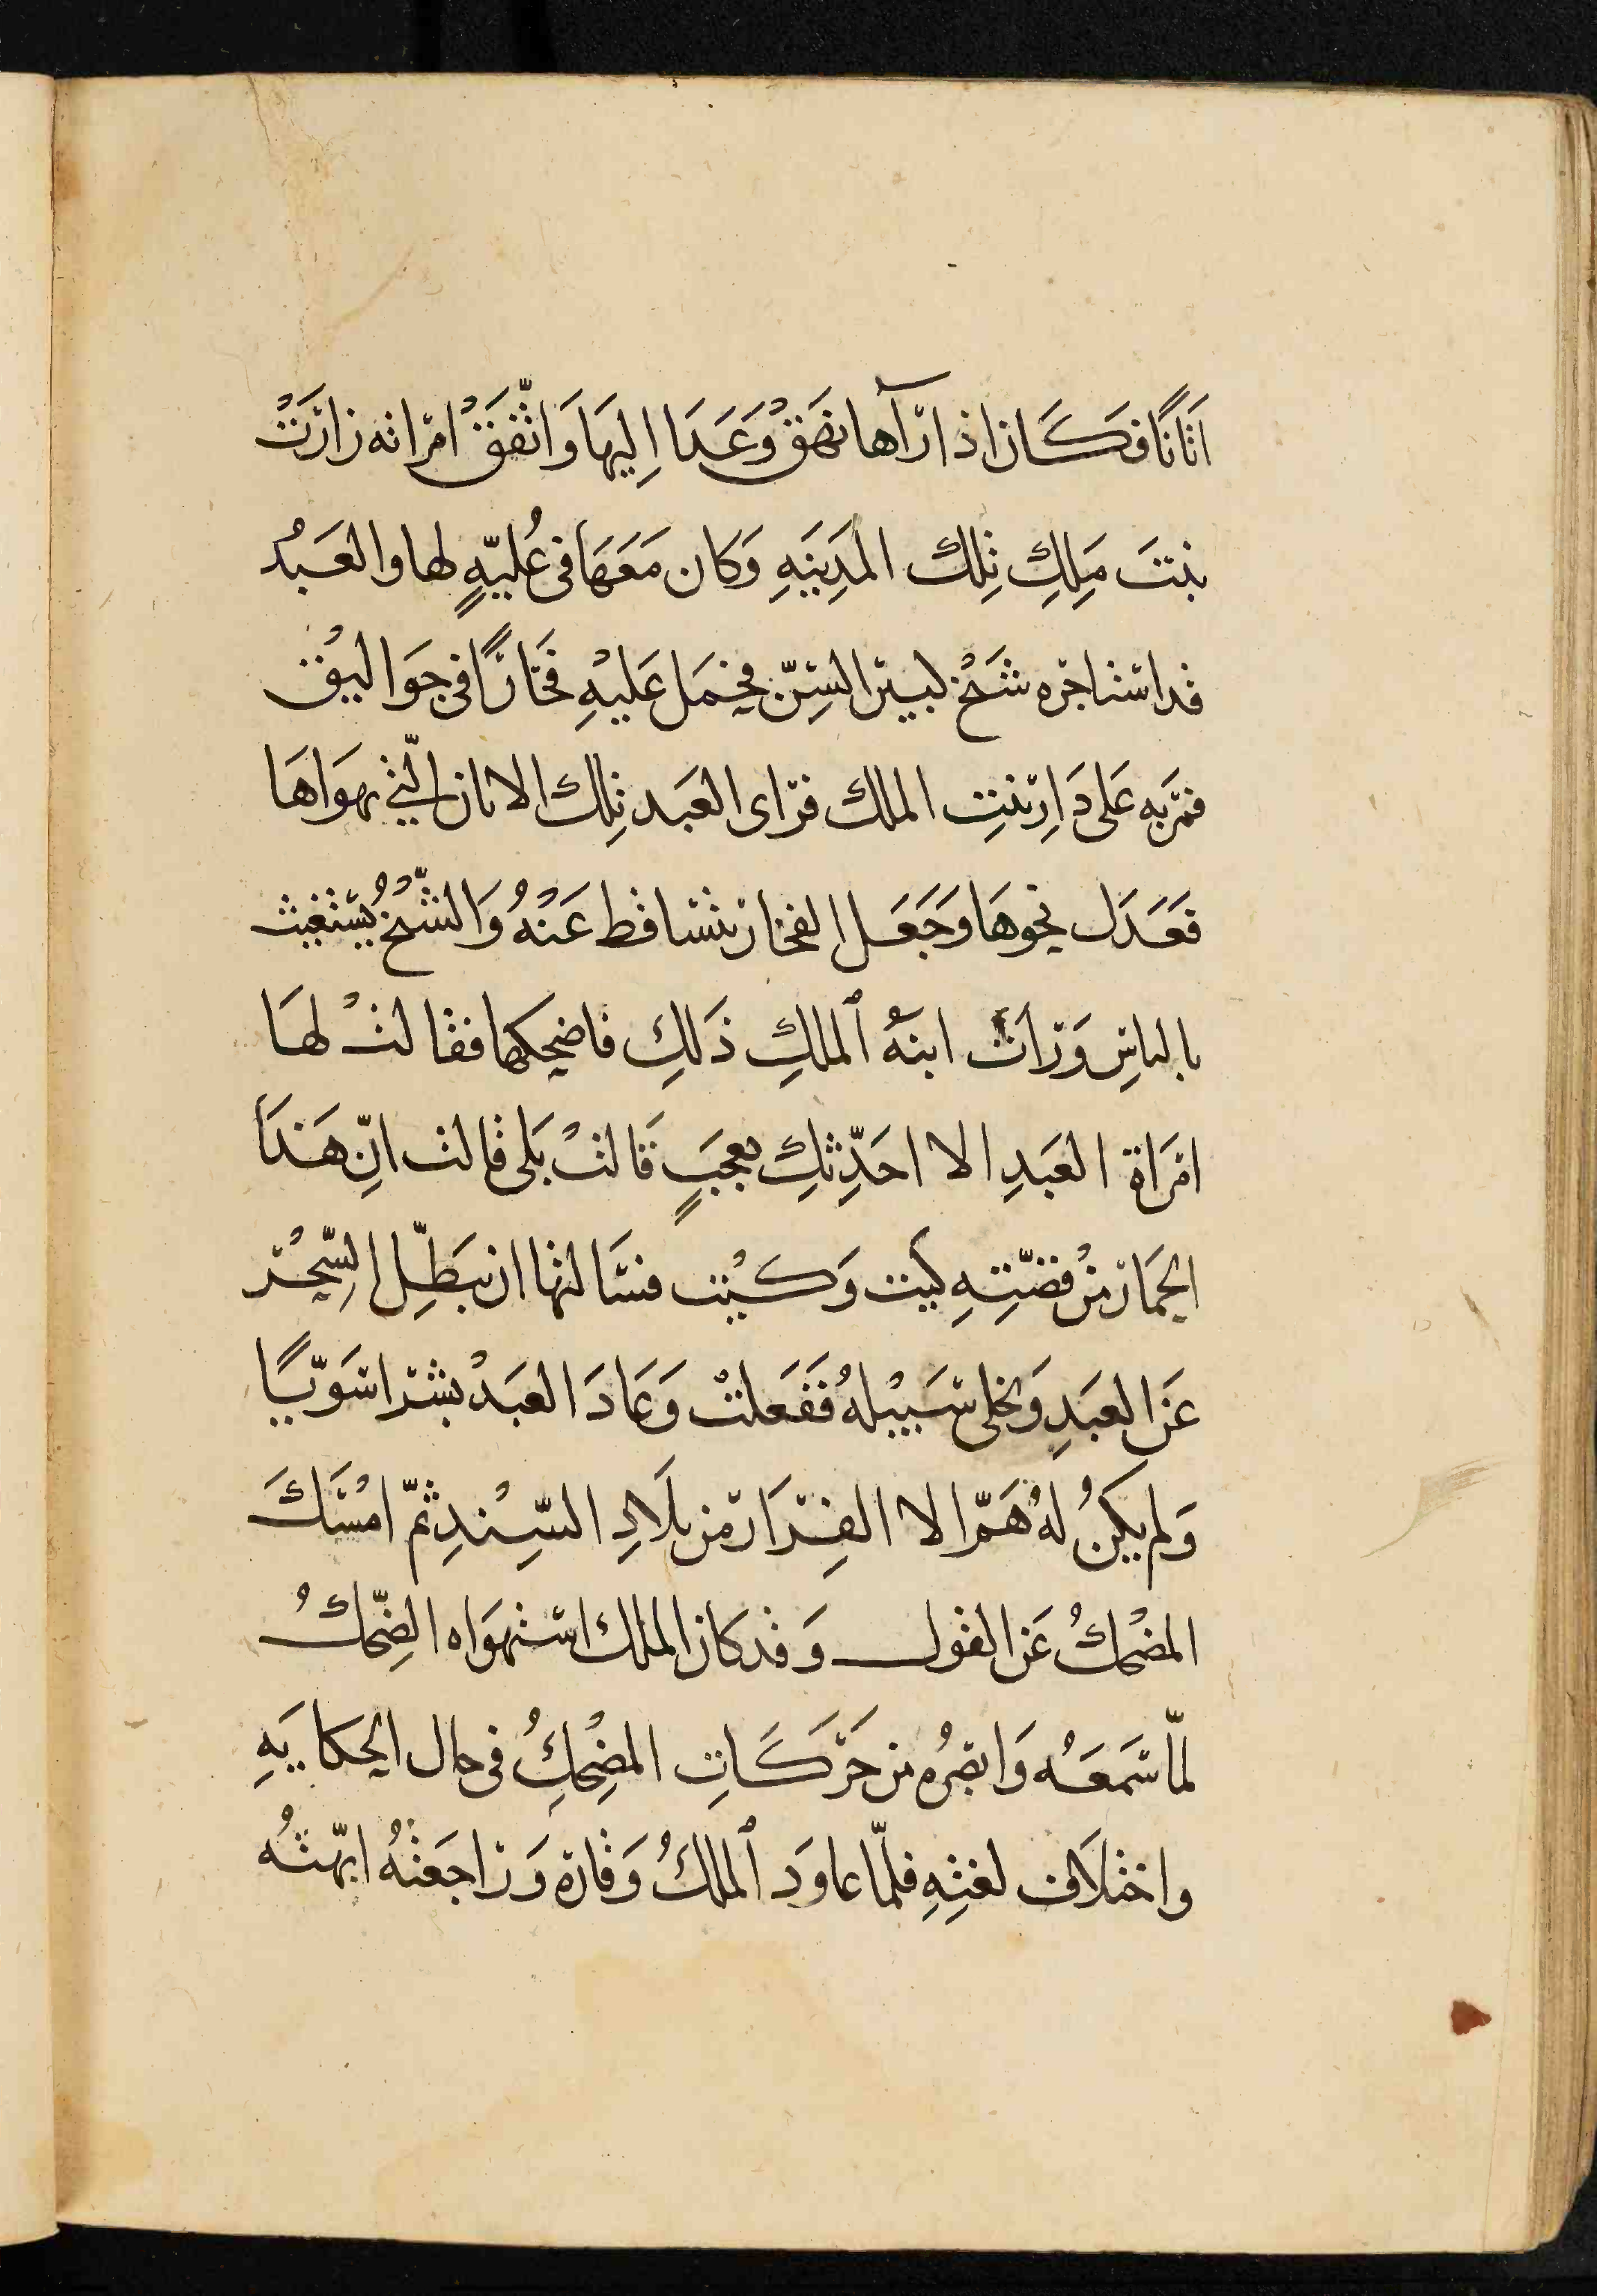 اَتَانًا فَكَان اذا رَآها نهَقَ وَعَدَا اِليهَا وَاتّفقَ امراته زارَتْ
بنتَ مَلِكِ تِلك المَدِينَهِ وَكان مَعَهَا فى عُليّهٍ لها والعَبدُ
قد استاجره شَيْخ كبير السِنّ يحْمَل عَليْهِ فخَارًا فى جَوَاليْقَ
فمرّ به عَلى دَارِ بنتِ الملك فرَاى العَبد تِلك الاتان الّتى يهوَاهَا
فَعَدَل نحوهَا وَجَعَل الفخار يتسَاقط عَنْهُ وَالشّيْخُ يَسْتغيث
بالناسِ وَرَات ابنَهُ الملكِ ذَلكِ فاضحكها فقالتْ لهَا
امرَاة العَبدِ الا احَدّثكِ بعجَبٍ قَالتْ بَلى قالت انّ هَذَا
الحمَار منْ قصّتِهِ كيت وَكيْت فسَالتها ان تبَطّل السِّحْر
عَن العبَدِ وَيخلى سَبيْلهُ ففَعَلتْ وَعَادَ العبَدْ بشرا سَويًّا
وَلم يكنْ لهُ هَمّ الا الفِرَار من بلَادِ السِّنْدِ ثمّ امْسَكَ
المضْحكُ عَن القول وَقد كان الملك استهوَاه الضِّحكُ
لمّا سَمعَهُ وَابصَرهُ من حَرَكَاتِ المضْحِكِ فى حال الحكايَهِ
واختلَاف لغتِهِ فلمّا عاوَد الملكُ وَقارَه وَرَاجعَتْهُ ابّهتُه